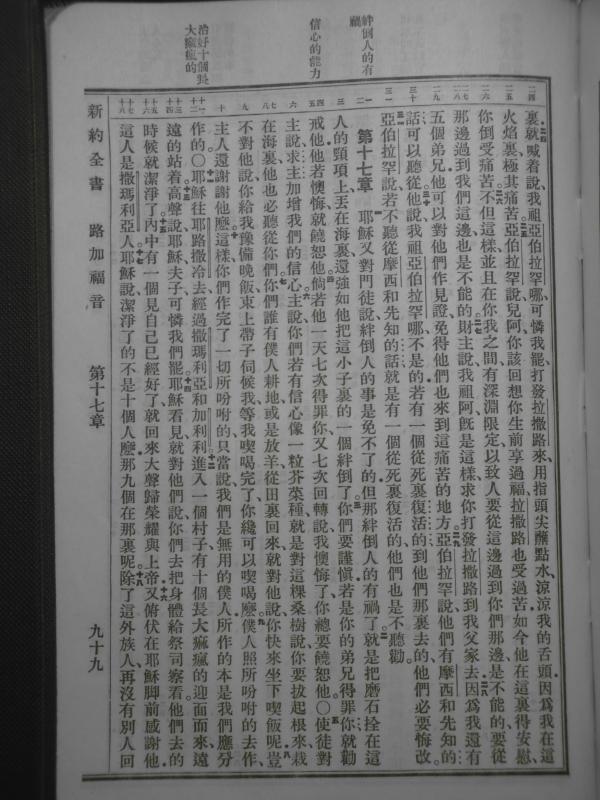 絆倒人的有禍
信心的能力
治好十個長
大痲瘋的
裏就喊着說我祖亞伯拉罕哪可憐我罷打發拉撒路來用指頭尖蘸點水涼涼我的舌頭因爲我在這
火焰裏極其痛苦亞伯拉罕說兒阿你該回想你生前享過福拉撒路也受過苦如今他在這裏得安慰
你倒受痛苦不但這樣並且在你我之間有深淵限定以致人要從這邊過到你們那邊是不能的要從
那邊過到我們這邊也是不能的財主說我祖阿旣是這樣求你打發拉撒路到我父家去因爲我還有
五個弟兄他可以對他們作見證免得他們也來到這痛苦的地方亞伯拉罕說他們有摩西和先知的
話可以聽從他說我祖亞伯拉罕哪不是的若有一個從死裏復活的到他們那裏去的他們必要悔改
亞伯拉罕說若不聽從摩西和先知的話就是有一個從死裏復活的他們也是不聽勸
第十七章 耶穌又對門徒說絆倒人的事是免不了的但那絆倒人的有禍了就是把磨石拴在這
人的頸項上丟在海裏還強如他把這小子裏的一個絆倒了你們要謹愼若是你的弟兄得罪你就勸
戒他他若懊悔就饒恕他倘若他一天七次得罪你又七次回轉說我懊悔了你總要饒恕他〇使徒對
主說求主加增我們的信心主說你們若有信心像一粒芥菜種就是對這棵桑樹說你要拔起根來栽
在海裏他也必聽從你們你們誰有僕人耕地或是放羊從田裏回來就對他說你快來坐下喫飯呢豈
不對他說你給我豫備晚飯束上帶子伺候我等我喫喝完了你纔可以喫喝麽僕人照所吩咐的去作
主人還謝謝他麽這樣你們作完了一切所吩咐的只當說我們是無用的僕人所作的本是我們應分
作的〇耶穌往耶路撒冷去經過撒瑪利亞和加利利進入一個村子有十個長大痲瘋的迎面而來遠
遠的站着高聲說耶穌夫子可憐我們罷耶穌看見就對他們說你們去把身體給祭司察看他們去的
時候就潔淨了內中有一個見自己已經好了就回來大聲歸榮耀與上帝又俯伏在耶穌脚前感謝他
這人是撒瑪利亞人耶穌說潔淨了的不是十個人麽那九個在那裏呢除了這外族人再沒有別人回
新約全書 路加福音 第十七章 九十九